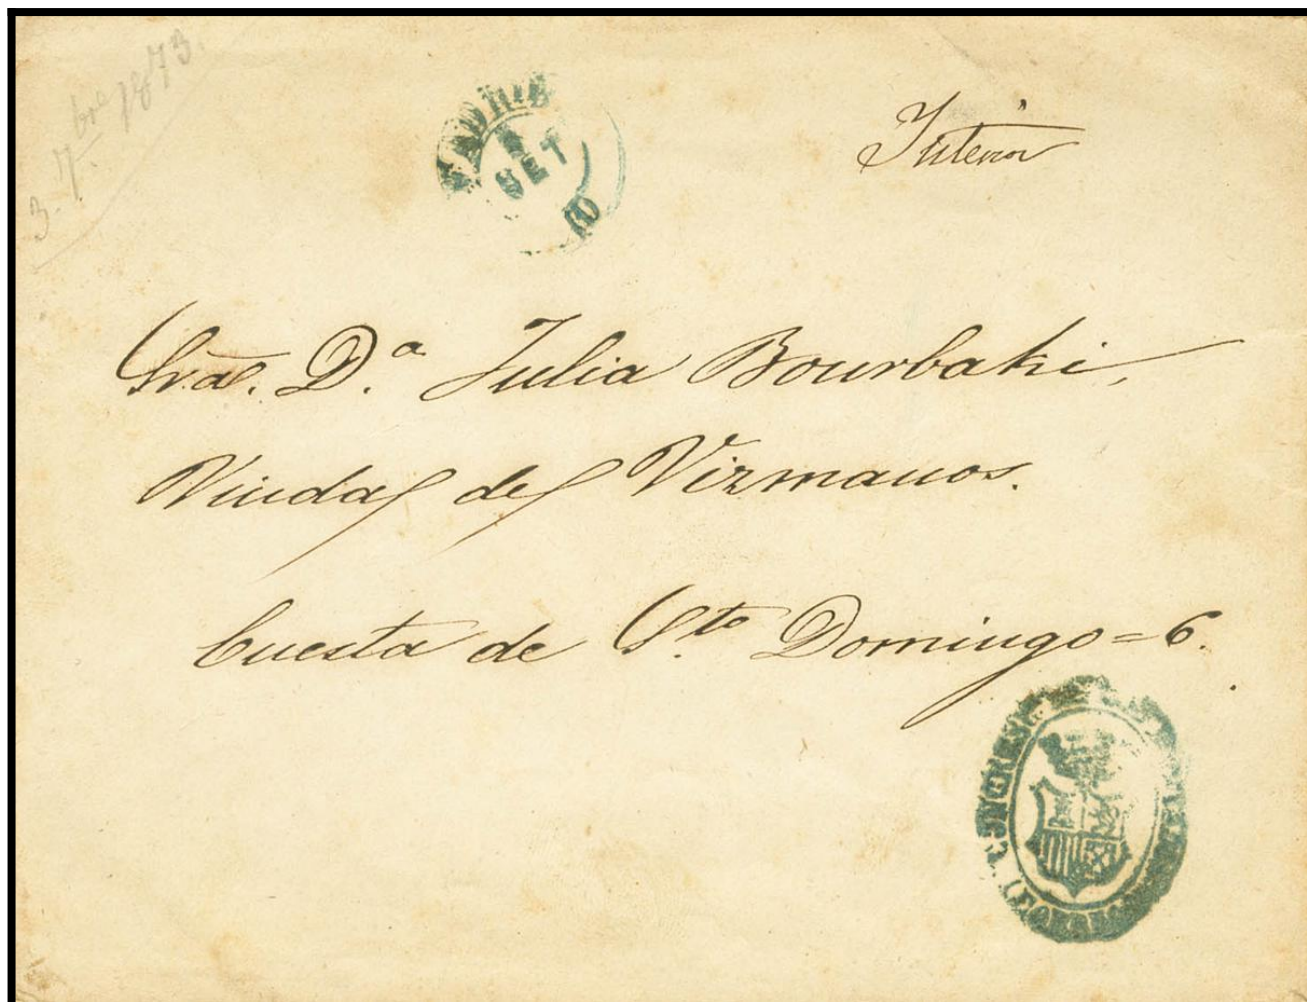 3. 7.bre 1873.
MADRID
SET
10
Interior
Sra. D.ª Julia Bourbaki,
Viuda de Vizmanos.
Cuesta de S.to Domingo = 6.
CONGRESO
CORREOS